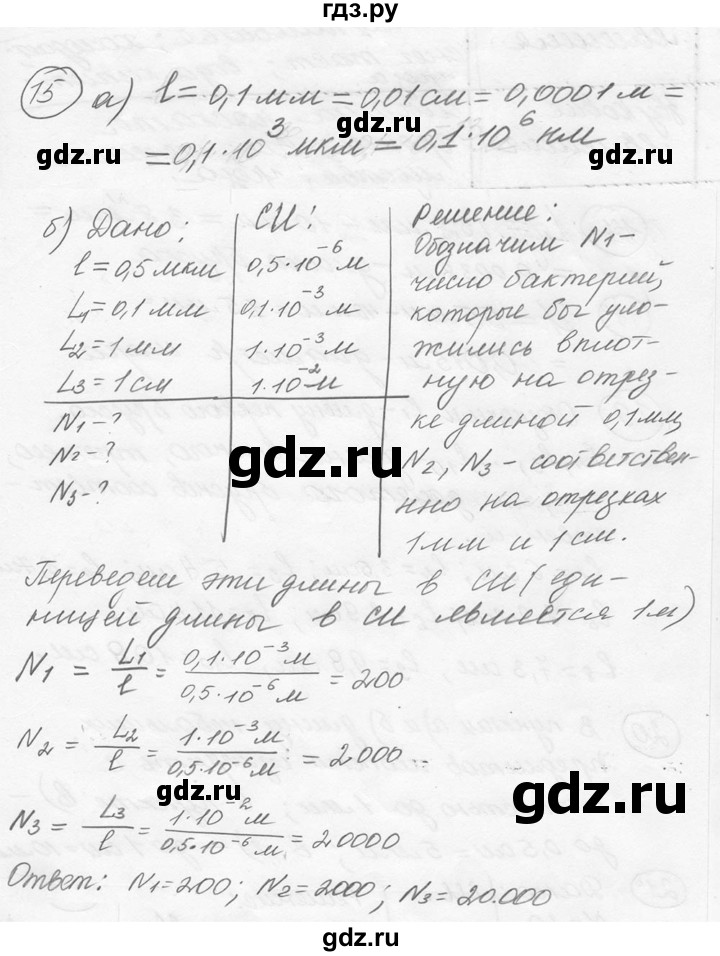 гдз.ру
15 а) l = 0,1 мм = 0,01 см = 0,0001 м =
= 0,1·10³ мкм = 0,1·10⁶ нм
gdz.ru
gdz.ru
gdz.ru
б) Дано:
l = 0,5 мкм
L₁ = 0,1 мм
L₂ = 1 мм
L₃ = 1 см
N₁ - ?
N₂ - ?
N₃ - ?
СИ:
0,5·10⁻⁶ м
0,1·10⁻³ м
1·10⁻³ м
1·10⁻² м
Решение:
Обозначим N₁ -
число бактерий,
которые бы уло-
жились вплот-
ную на отрез-
ке длиной 0,1 мм,
N₂, N₃ - соответствен-
нно на отрезках
1 мм и 1 см.
gdz.ru
gdz.ru
gdz.ru
Переведем эти длины в СИ (еди-
ницей длины в СИ является 1 м)
N₁ = L₁/l = 0,1·10⁻³ м / 0,5·10⁻⁶ м = 200
N₂ = L₂/l = 1·10⁻³ м / 0,5·10⁻⁶ м = 2000
gdz.ru
gdz.ru
N₃ = L₃/l = 1·10⁻² м / 0,5·10⁻⁶ м = 20000
Ответ: N₁ = 200; N₂ = 2000; N₃ = 20.000
gdz.ru
гдз.ру